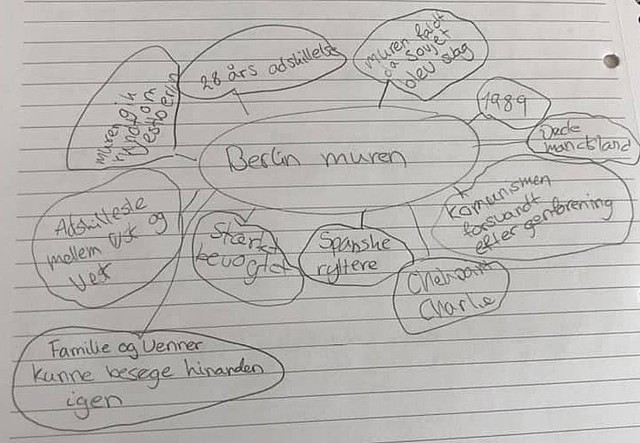 28 års adskillelse
muren faldt
da Sovjet
blev svag
1989
Døde
mandsland
muren
rundt gik
om
vestberlin
Berlin muren
Komunismen
forsvandt
efter genforening
Adskilteste
mellem Øst og
Vest
Stærkt
bevogtet
Spanske
ryttere
Charlie
Familie og Venner
kunne besøge hinanden
igen